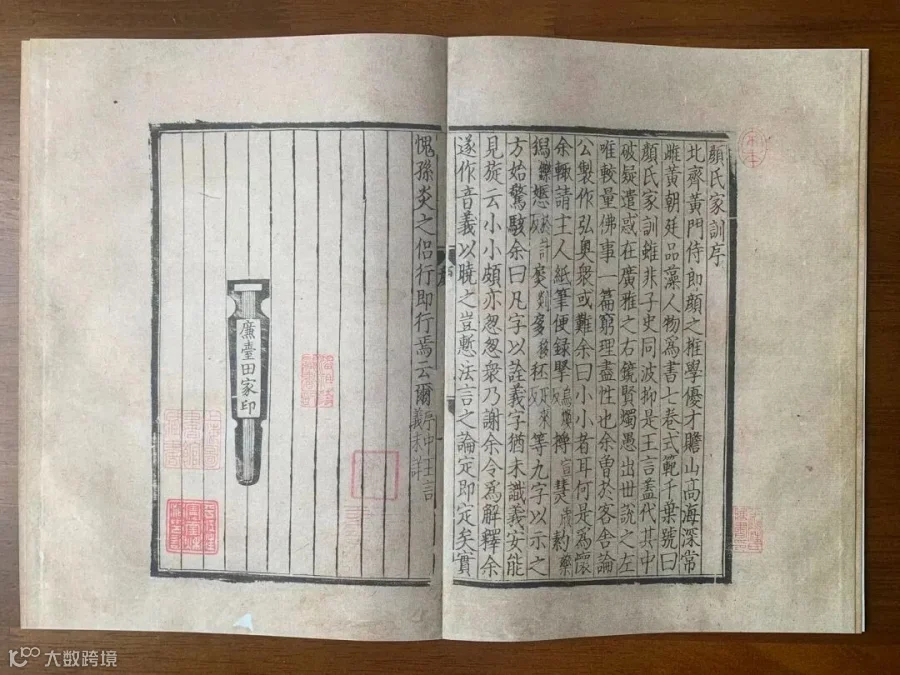 顏氏家訓序
北齊黃門侍郎顏之推學優才贍山高海深常
雌黃朝廷品藻人物為書七卷式範千葉號曰
顏氏家訓雖非子史同波抑是王言蓋代其中
破疑遣惑在廣雅之右鏡賢燭愚出世說之左
唯較量佛事一篇窮理盡性也余曽於客舍論
公製作弘奧衆或難余曰小小者耳何是為懷
余輙請主人紙筆便録
等九字以示之
方始驚駭余曰凡字以詮義字猶未識義安能
見旋云小小頗亦怱怱衆乃謝余令為解釋余
遂作音義以曉之豈慙法言之論定即定矣實
愧孫炎之侣行即行焉云爾
廉臺田家印
大数跨境